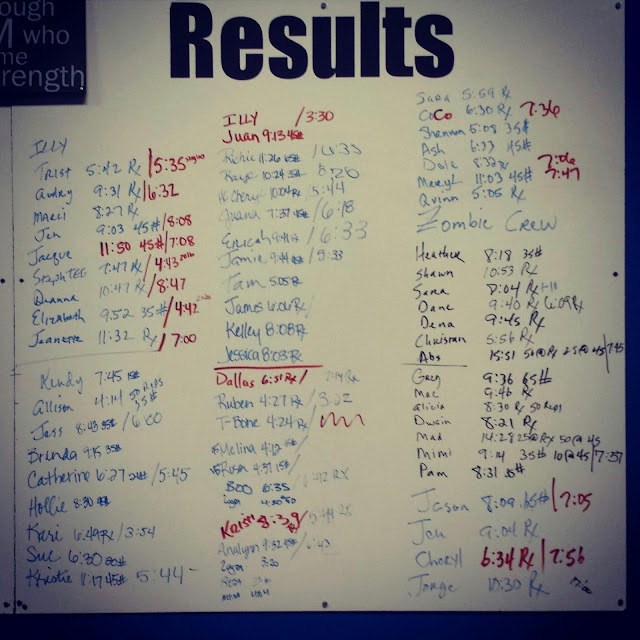 ough
M who
me
trength
Results
ILLY
Trist 5:42 Rx /5:35
Audry 9:31 Rx /6:32
Marci 8:27 Rx
Jen 9:03 45# /8:08
Jacque 11:50 45# /7:08
Steph TEG 7:47 Rx /4:43
Dianna 10:47 Rx /8:47
Elizabeth 9:52 35# /4:42
Jeanette 11:32 Rx /7:00
Kendy 7:45
Allison 4:14 35#
Jess 8:43 35# /6:00
Brenda 9:15 35#
Catherine 6:27 /5:45
Hollie 8:30
Kari 6:49 Rx /3:54
Sue 6:30
Khristie 11:17 45# 5:44
ILLY /3:30
Juan 9:13 45#
Richie 11:26 /6:35
10:24
Cheryl 10:04 Rx /5:44
Juana 7:37 /6:18
Ericah 9:41 /6:33
Jamie 9:44 /5:33
Tam 5:05 Rx
James 6:06 Rx /
Kelley 8:08 Rx
Jessica 8:03 Rx
Dallas 6:51 Rx /
Ruben 4:27 Rx /3:22
T-Bone 4:24 Rx
Melina 4:12
4:37
Boo 6:35
Kristi 8:39
Analynn 9:32 /6:43
3:20
Sara 5:59 Rx
CoCo 6:30 Rx 7:36
Shannon 6:08 35#
Ash 6:33 45#
Dale 8:32 Rx 7:06
Merryl 11:03 45# 7:47
Quinn 5:05 Rx
Zombie Crew
Heather 8:18 35#
Shawn 10:53 Rx
Sara 8:04 Rx
Dane 9:40 Rx 6:09 Rx
Dena 9:45 Rx
Christian 5:56 Rx
Abs 15:51 50@Rx 25@45 /7:45
Greg 9:36 65#
Mac 9:46 Rx
Alicia 8:30 Rx 50 Reps
Dwain 8:21 Rx
Mad 14:28 25@Rx 50@45
Mimi 9:14 35# 10@45 /7:57
Pam 8:31 35#
Jason 8:09 65# /7:05
Jon 9:04 Rx
Cheryl 6:34 Rx /7:56
Jorge 10:30 Rx